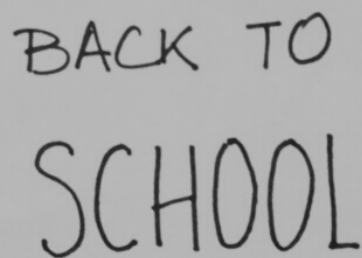 BACK TO
SCHOOL